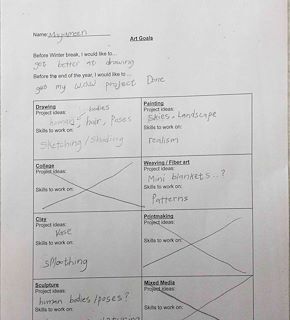 Name:
Art Goals
Before Winter break, I would like to...
get better at drawing
Before the end of the year, I would like to...
get my wow project Done
Drawing
Project ideas: bodies
hair, Poses
Skills to work on:
Sketching / Shading
Painting
Project ideas:
Skies, Landscape
Skills to work on:
realism
Collage
Project ideas:
Skills to work on:
Weaving / Fiber art
Project ideas:
Mini blankets..?
Skills to work on:
Patterns
Clay
Project ideas:
Vase
Skills to work on:
smoothing
Printmaking
Project ideas:
Skills to work on:
Sculpture
Project ideas:
human bodies/poses?
Skills to work on:
Mixed Media
Project ideas:
Skills to work on: